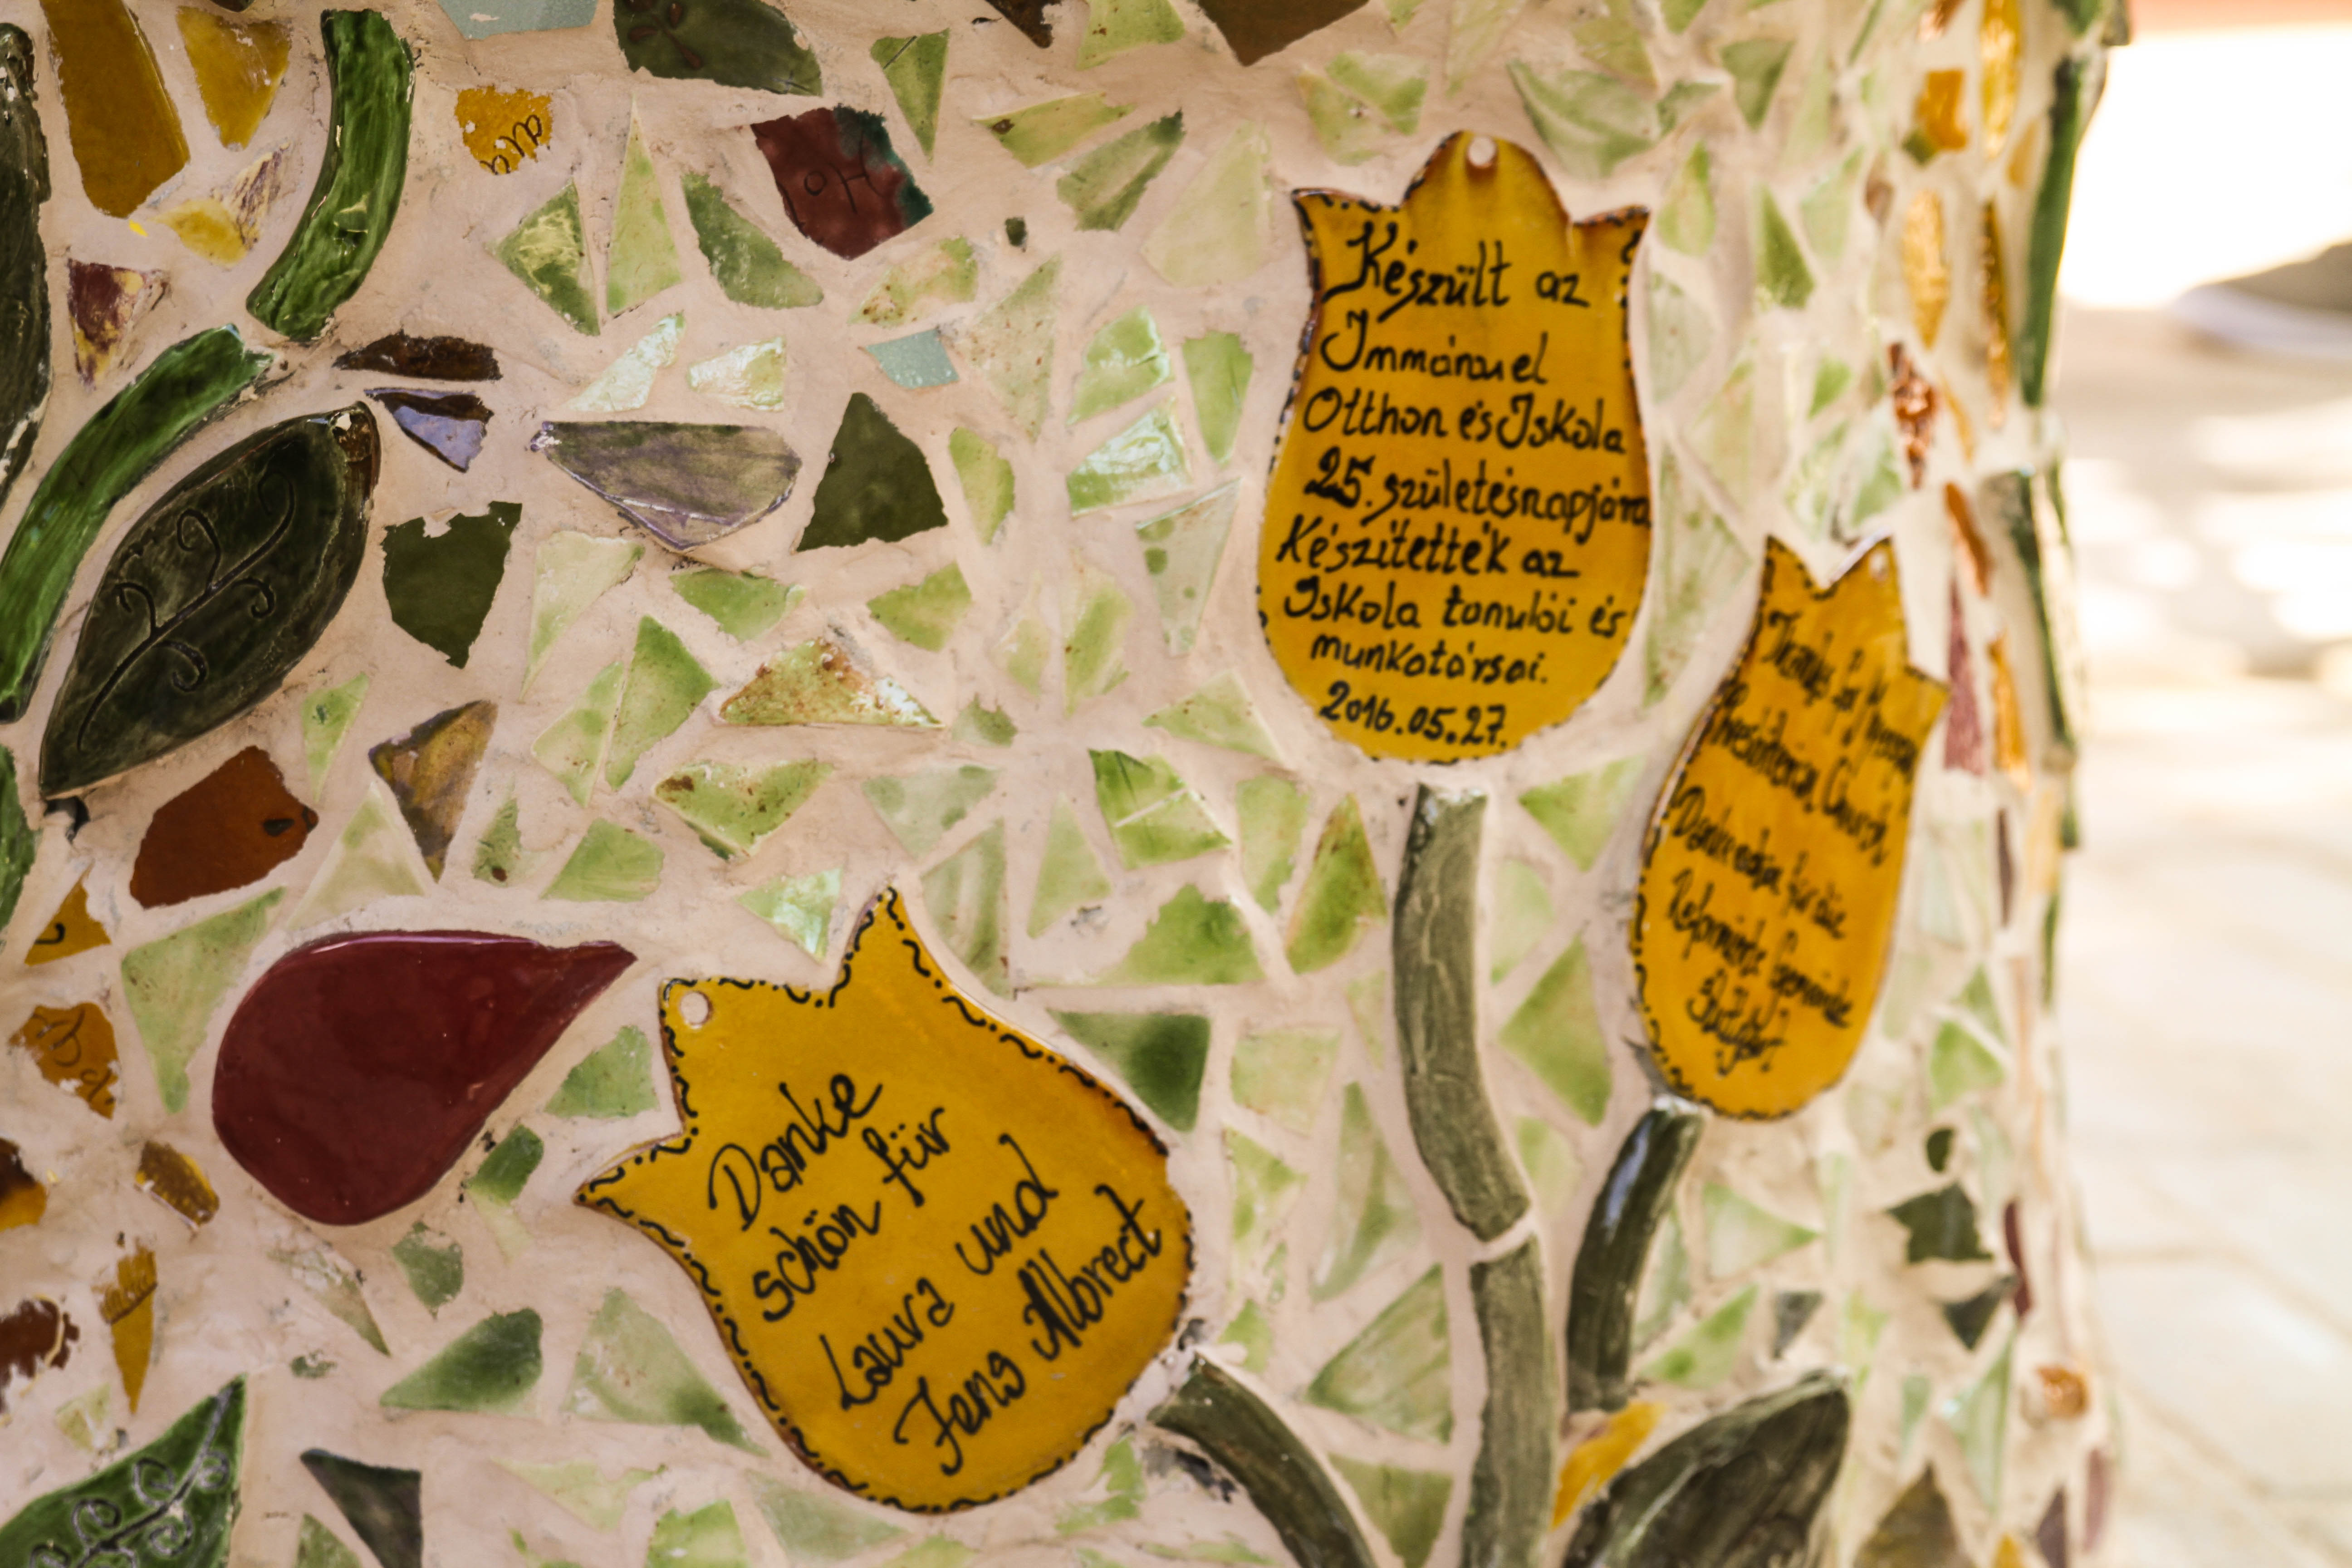 Készült az
Immánuel
Otthon és Iskola
25. születésnapjára
Készítették az
Iskola tanulói és
munkatársai.
2016.05.27.
Danke
schön für
Laura und
Jens Albrect
Presbiterian Church
für die
Reformierte Gemeinde
Stuttgart
ala